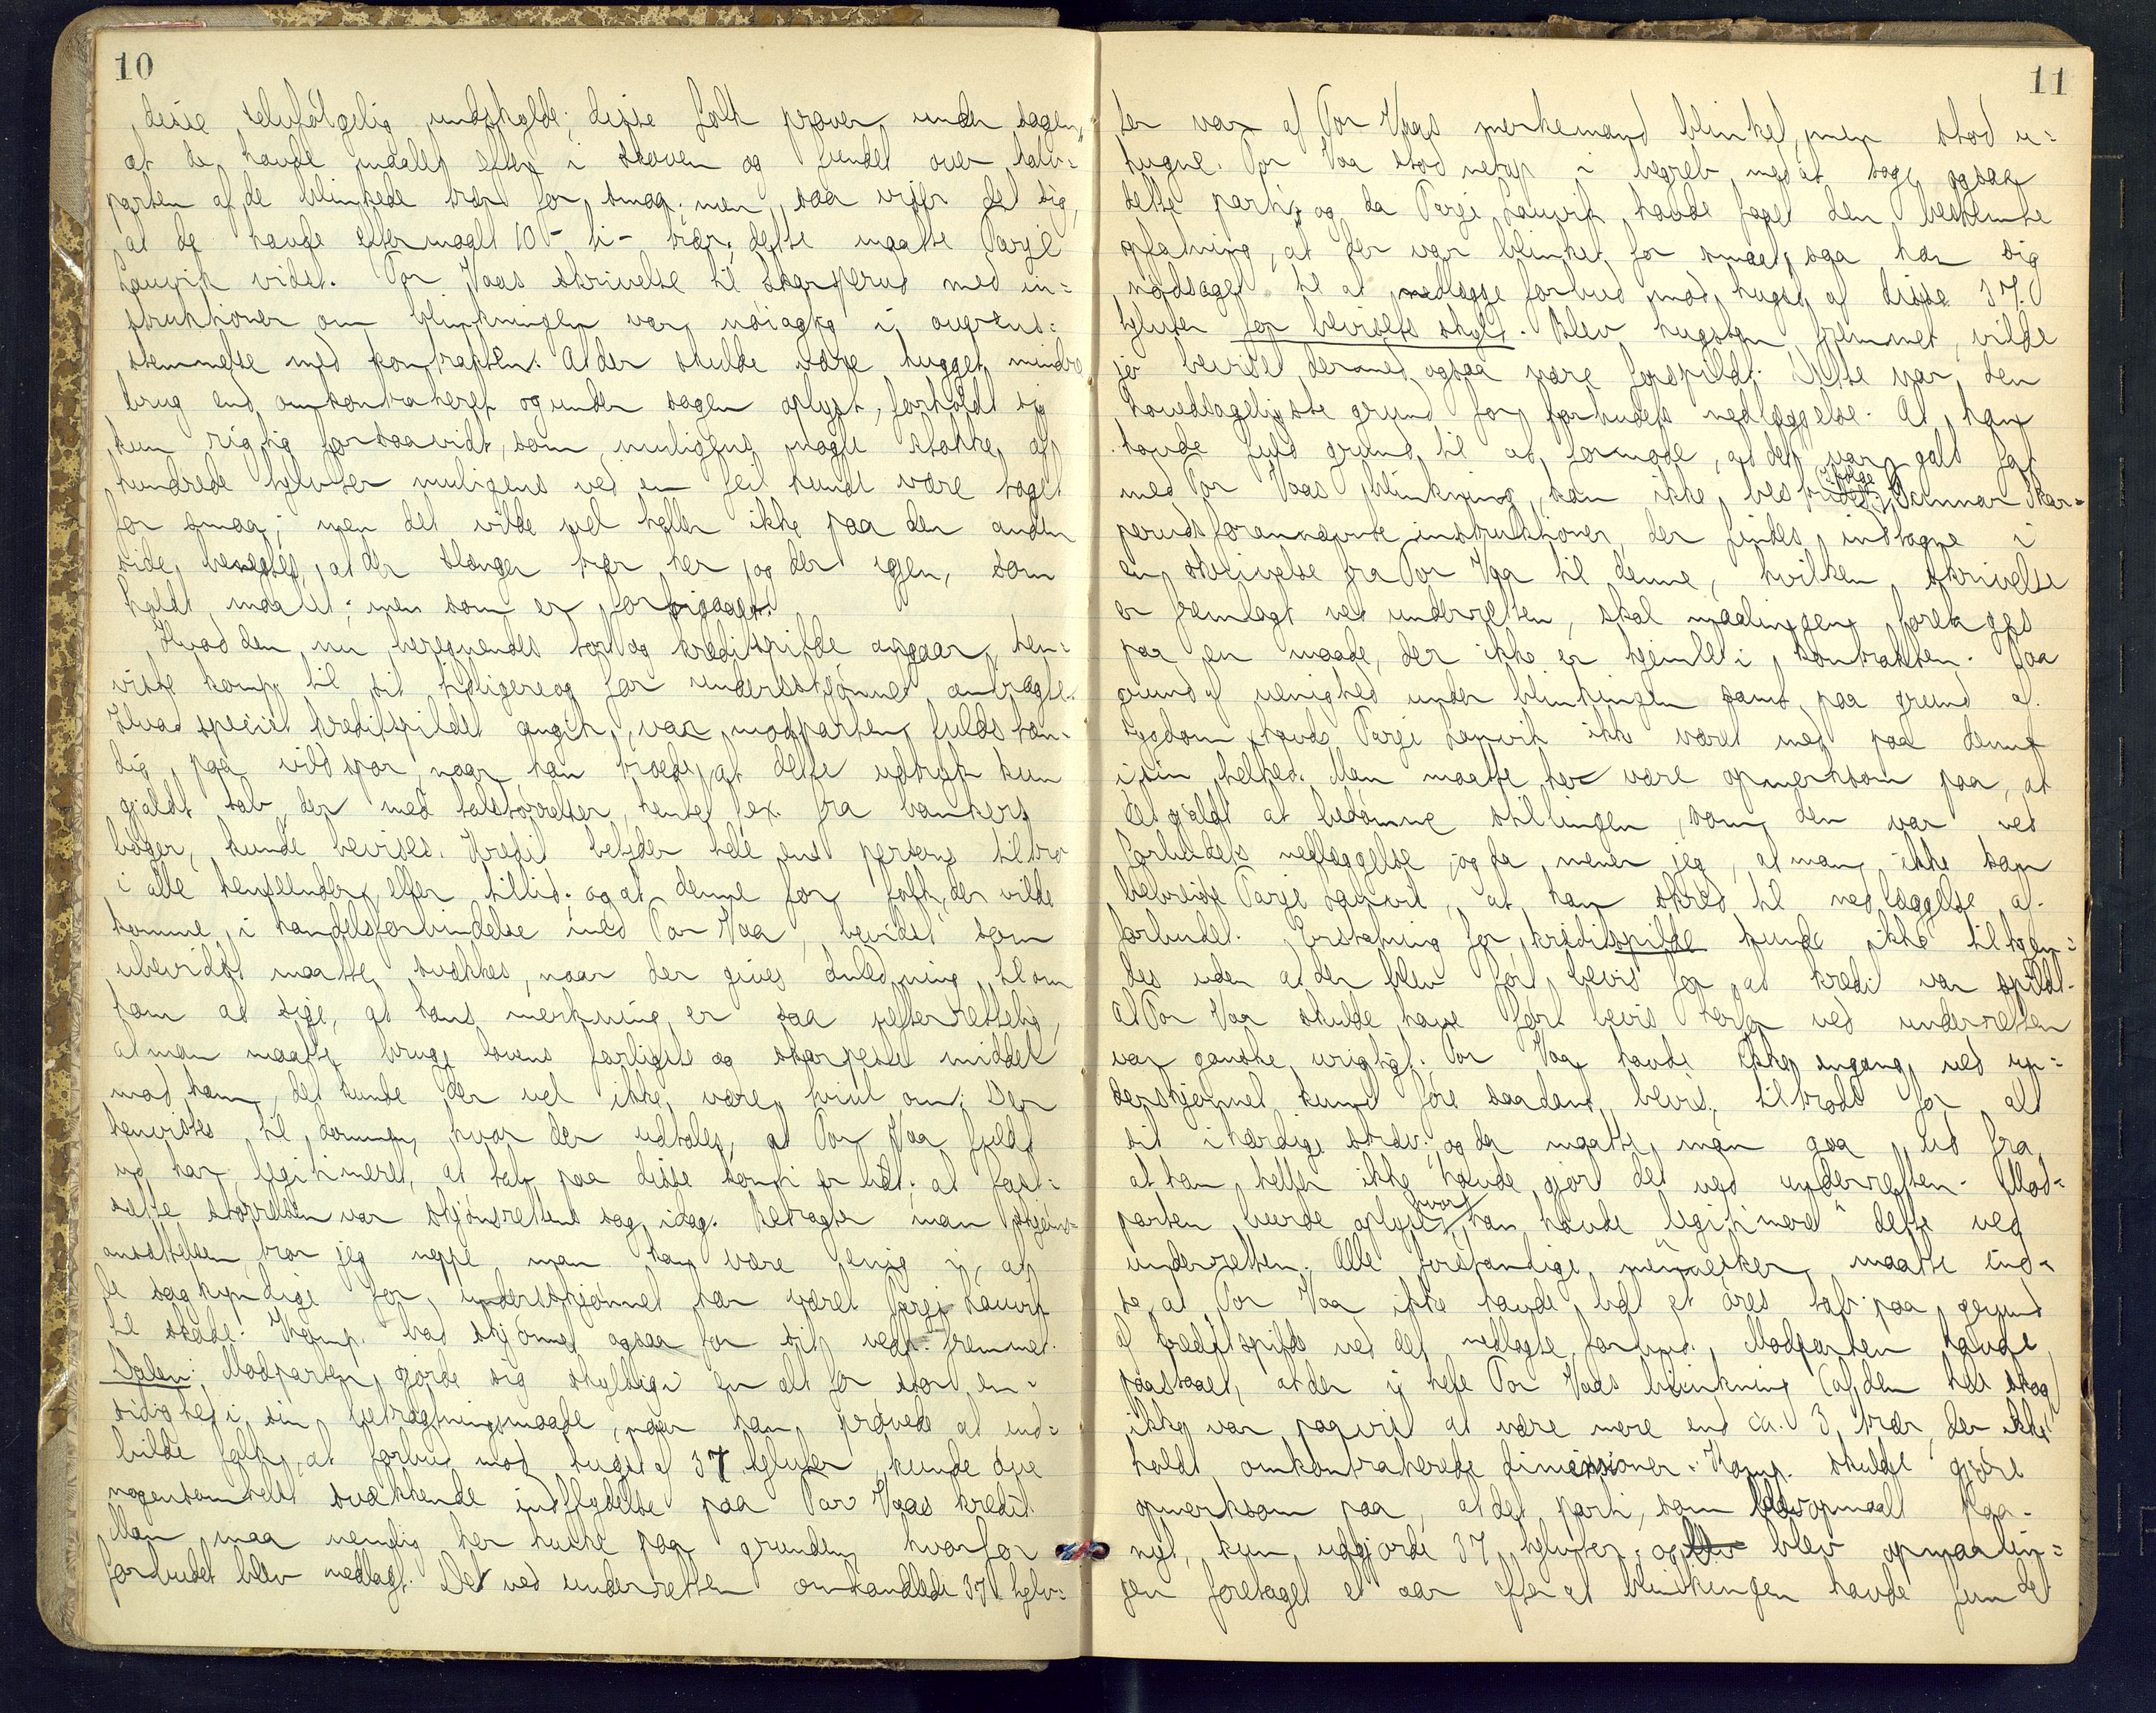 10
disse selvfölgelig undskylde; disse folk pröver under sagen,
at de havde maalt efter i skoven og fundet over halv=
parten af de blinkede trær for smaa; men saa viser det sig,
at de havde eftermaalt 10 - ti - trær; dette maatte Tarje
Lauvik vidst. Tor Vaas skrivelse til Skarperud med in=
struktioner om blinkningen var nöiagtig i overens=
stemmelse med kontrakten. At der skulde være hugget mindre
brug end omkontraheret og under sagen oplyst, forholdt sig
kun rigtig forsaavidt, som muligens nogle stokke af
hundrede tylvter muligens ved en feil kunde være taget
for smaa; men det vilde vel heller ikke paa den anden
side benegtes, at der stænger trær her og der igjen, som
holdt maalet; men som er forbigaaet.
Hvad den nu beregnendes tap og kreditspilde angaar, hen=
viste komp. til sit tidligere og for underskjönnet anvragte.
Hvad specielt kreditspildet angik, var modparten fuldstæn=
dig paa vildspor, naar han troede, at dette udtryk kun
gjaldt tab, der med talstörrelser, hentet f.ex. fra bankers
böger, kunde bevises. Kredit betyder hele ens persons tiltro
i alle henseender, eller tillid; og at denne for folk, der vilde
komme i handelsforbindelse med Tor Vaa, bevidst som
ubevidst maatte svækkes, naar der gives anledning til om
ham at sige, at hans merkning er saa uefterrettelig,
at man maatte bruge lovens farligste og skarpeste middel
mod ham, det kunde der vel ikke være tvivl om; Der
henvistes til dommen, hvor der udtales, at Tor Vaa fuldt
ud har legitimeret, at tab paa disse konti er lidt; at fast=
sætte störrelsen var skjönsrettens sag idag. Betragter man skjöns=
ansættelsen, tror jeg neppe man kan være enig i, at
de sagkyndige for underskjönnet har været Tarje Lauvik
til skade. Komp. bad skjönnet ogsaa for sit vedk. fremmet.
Dalen: Modparten gjorde sig skyldig i en alt for stor en=
sidighed i sin betragtningsmaade, naar han prövede at ind=
bilde folk, at forbud mod hugst af 37 tylvter kunde öve
nogensomhelst svækkende indflydelse paa Tor Vaas kredit.
Man maa nemlig her huske paa grunden, hvorfor
forbudet blev nedlagt. De ved underretten omhandlede 37 tylv=
11
ter var af Tor Vaas merkemand blinket, men stod u=
hugne. Tor Vaa stod netop i begreb med at tage ogsaa
dette parti, og da Tarje Lauvik havde faaet den bestemte
opfatning, at der var blinket for smaat, saa han sig
nödsaget til at nedlægge forbud mod hugst af disse 37
tylvter for bevisets skyld. Blev hugsten fremmet, vilde
jo beviset dermed ogsaa være forspildt. Dette var den
hovedsageligste grund for forbudets nedlæggelse. At han
havde fuld grund til at formode, at det var galt fat
med Tor Vaas blinkning, kan ikke bestrides. Ifölge Gunnar Skar=
peruds forannævnte instruktioner, der findes indtagne i
en skrivelse fra Tor Vaa til denne, hvilken skrivelse
er fremlagt ved underretten, skal maalingen foretages
paa en maade, der ikke er hjemlet i kontrakten. Paa
grund af uenighed under blinkingen samt paa grund af
sygdom havde Tarje Lauvik ikke været med paa denne
i sin helhed. Man maatte her være opmerksom paa, at
det gjaldt at bedömme stillingen, som den var ved
forbudets nedlæggelse, og da mener jeg, at man ikke kan
bebreide Tarje Lauvik, at han skred til nedlæggelse af
forbudet. Erstatning for kreditspilde kunde ikke tilkjen=
des uden at der blev fört bevis for, at kredit var spildt.
At Tor Vaa skulde have fört bevis herfor ved underretten
var ganske urigtigt. Tor Vaa havde ikke engang ved un=
derskjönnet kund före saadant bevis, tiltrods for alt
sit ihærdige stræv; og da maatte man gaa ud fra,
at han heller ikke havde gjort det ved underretten. Mod=
parten burde oplyse, hvor han havde "legitimeret" dette ved
underretten. Alle forstandige mennesker maatte ind=
se, at Tor Vaa ikke havde lidt et öres tab paa grund
af kreditspilde ved det nedlagte forbud. Modparten havde
paastaaet, at der i hele Tor Vaas blinkning (af den hele skog)
ikke var paavist at være mere end ca. 3 trær, der ikke
holdt omkontraherede dimensioner. Komp. skulde gjöre
opmerksom paa, at det parti, som blev opmaalt paa=
nyt, kun udgjorde 37 tylvter; og blev opmaalin=
gen foretaget et aar efter at blinkingen havde fundet